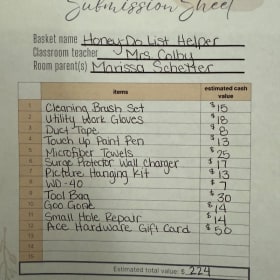 Submission Sheet
Basket name Honey-Do List Helper
Classroom teacher Mrs. Colby
Room parent(s) Marissa Schetter
items estimated cash value
1 Cleaning Brush Set $15
2 Utility Work Gloves $18
3 Duct Tape $8
4 Touch Up Paint Pen $13
5 Microfiber Towels $25
6 Surge Protector Wall Charger $17
7 Picture Hanging Kit $13
8 WD-40 $7
9 Tool Bag $30
10 Goo Gone $14
11 Small Hole Repair $14
12 Ace Hardware Gift Card $50
13
14
15
Estimated total value: $ 224